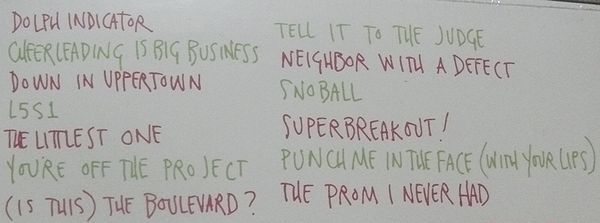 DOLPH INDICATOR
CHEERLEADING IS BIG BUSINESS
DOWN IN UPPERTOWN
L5S1
THE LITTLEST ONE
YOU'RE OFF THE PROJECT
(IS THIS) THE BOULEVARD?
TELL IT TO THE JUDGE
NEIGHBOR WITH A DEFECT
SNOBALL
SUPERBREAKOUT!
PUNCH ME IN THE FACE (WITH YOUR LIPS)
THE PROM I NEVER HAD